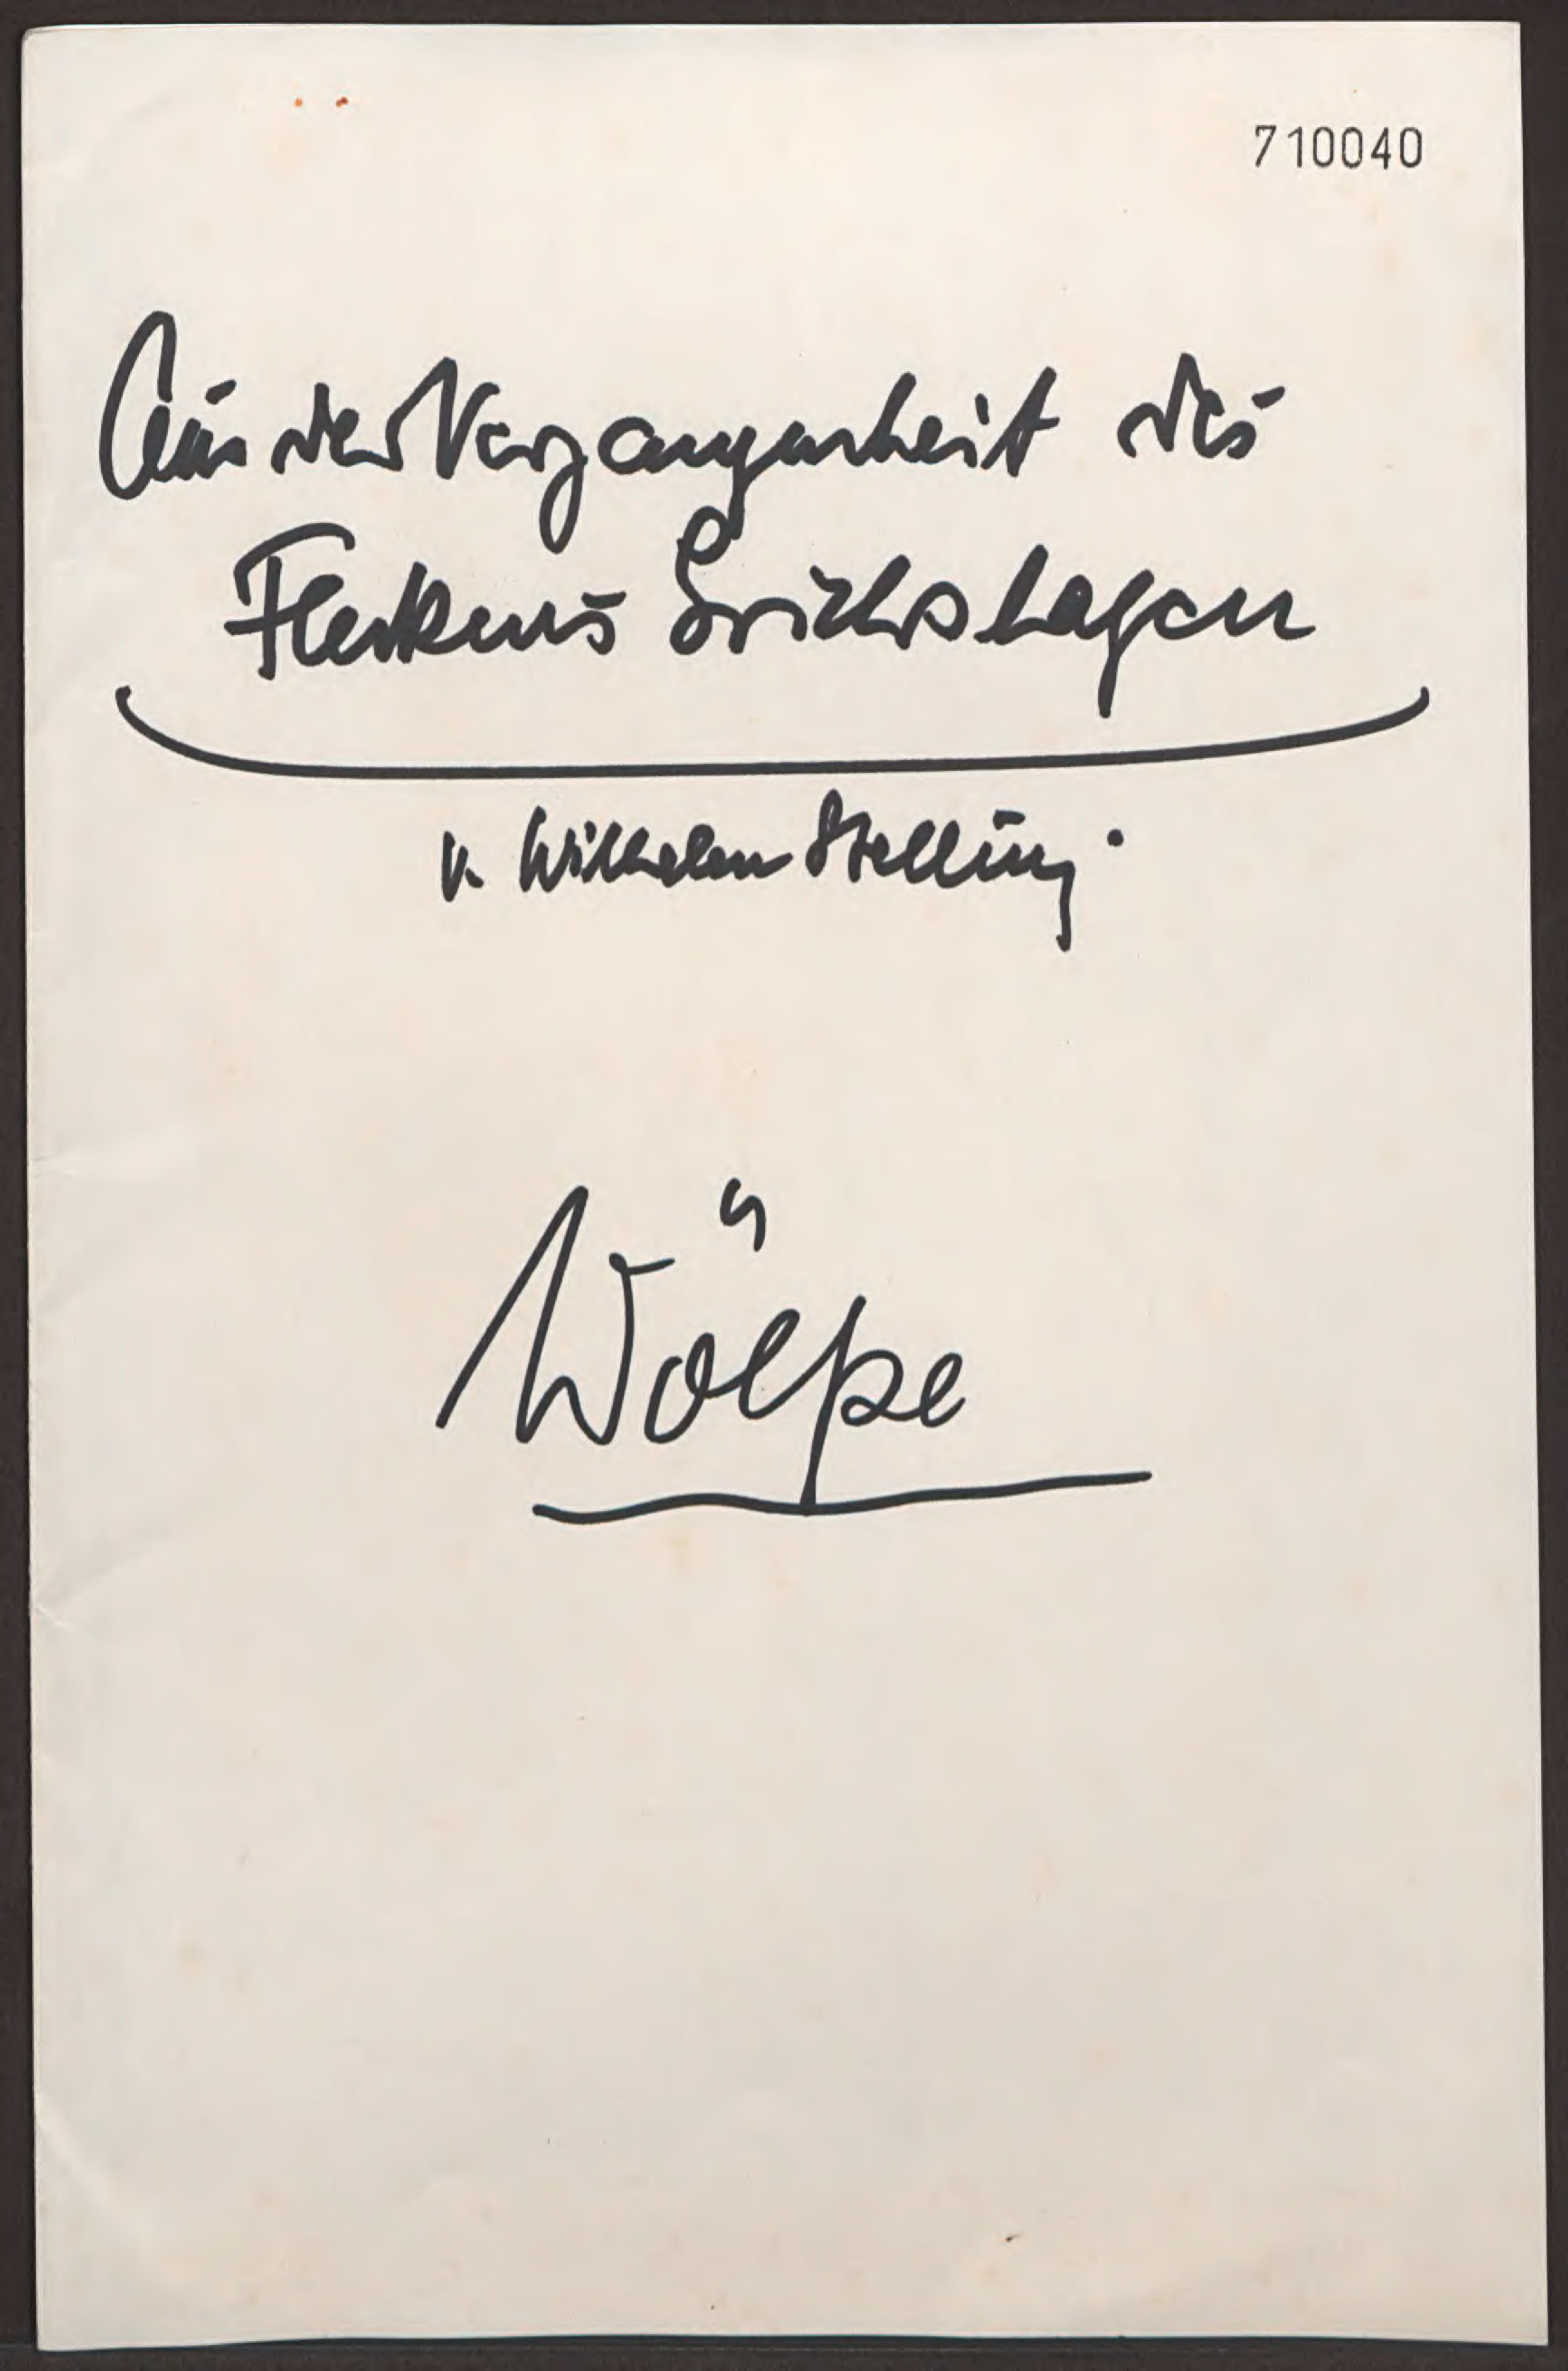 710040
Aus der Vergangenheit des
Fleckens Erichshagen
v. Wilhelm Stelling.
Wölpe